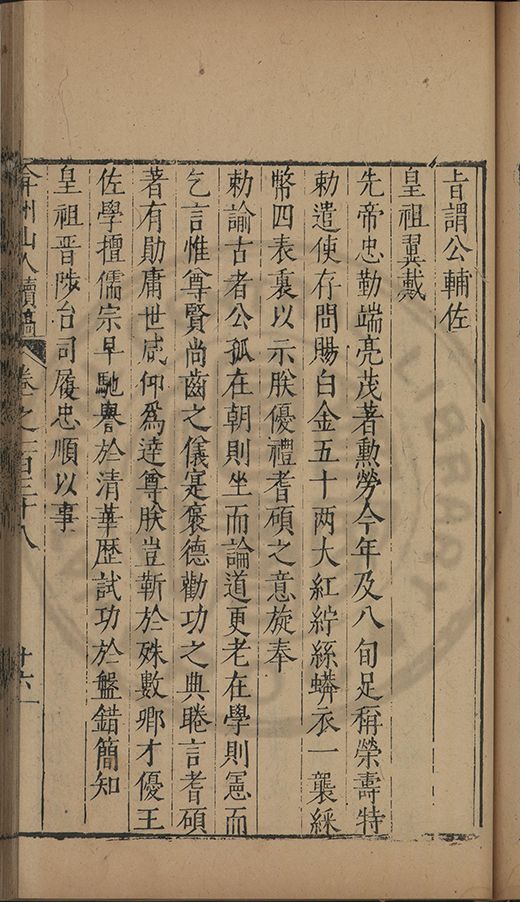 旨謂公輔佐
皇祖翼戴
先帝忠勤端亮茂著勳勞今年及八旬足稱榮壽特
勅遣使存問賜白金五十两大紅紵絲蟒衣一襲綵
幣四表裏以示朕優禮耆碩之意旋奉
勅諭古者公孤在朝則坐而論道更老在學則憲而
乞言惟尊賢尚齒之儀寔褒德勸功之典睠言耆碩
著有勛庸世咸仰爲達尊朕豈靳於殊數卿才優王
佐學擅儒宗早馳譽於清華歴試功於盤錯簡知
皇祖晋陟台司履忠順以事
弇州山人續稿 卷之一百三十八 廿六